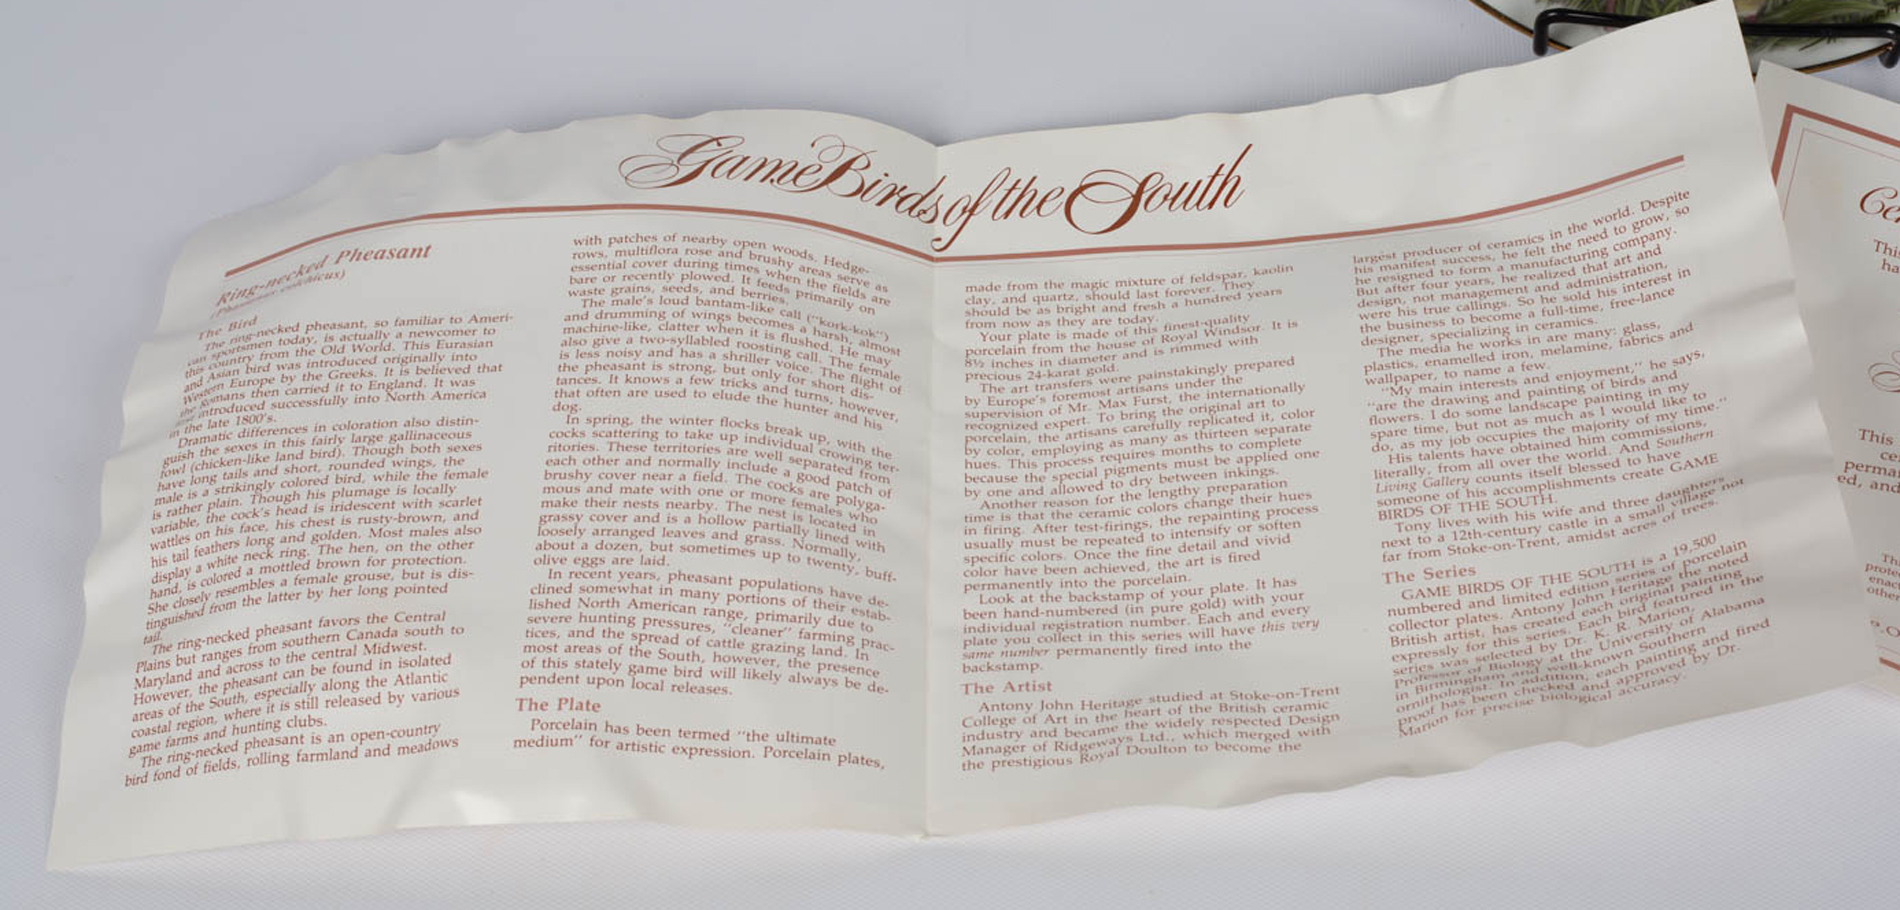 Game Birds of the South
Ring-necked Pheasant
(Phasianus colchicus)
The Bird
The ring-necked pheasant, so familiar to Ameri-
can sportsmen today, is actually a newcomer to
this country from the Old World. This Eurasian
and Asian bird was introduced originally into
Western Europe by the Greeks. It is believed that
the Romans then carried it to England. It was
first introduced successfully into North America
in the late 1800's.
Dramatic differences in coloration also distin-
guish the sexes in this fairly large gallinaceous
fowl (chicken-like land bird). Though both sexes
have long tails and short, rounded wings, the
male is a strikingly colored bird, while the female
is rather plain. Though his plumage is locally
variable, the cock's head is iridescent with scarlet
wattles on his face, his chest is rusty-brown, and
his tail feathers long and golden. Most males also
display a white neck ring. The hen, on the other
hand, is colored a mottled brown for protection.
She closely resembles a female grouse, but is dis-
tinguished from the latter by her long pointed
tail.
The ring-necked pheasant favors the Central
Plains but ranges from southern Canada south to
Maryland and across to the central Midwest.
However, the pheasant can be found in isolated
areas of the South, especially along the Atlantic
coastal region, where it is still released by various
game farms and hunting clubs.
The ring-necked pheasant is an open-country
bird fond of fields, rolling farmland and meadows
with patches of nearby open woods. Hedge-
rows, multiflora rose and brushy areas serve as
essential cover during times when the fields are
bare or recently plowed. It feeds primarily on
waste grains, seeds, and berries.
The male's loud bantam-like call ("kork-kok")
and drumming of wings becomes a harsh, almost
machine-like, clatter when it is flushed. He may
also give a two-syllabled roosting call. The female
is less noisy and has a shriller voice. The flight of
the pheasant is strong, but only for short dis-
tances. It knows a few tricks and turns, however,
that often are used to elude the hunter and his
dog.
In spring, the winter flocks break up, with the
cocks scattering to take up individual crowing ter-
ritories. These territories are well separated from
each other and normally include a good patch of
brushy cover near a field. The cocks are polyga-
mous and mate with one or more females who
make their nests nearby. The nest is located in
grassy cover and is a hollow partially lined with
loosely arranged leaves and grass. Normally,
about a dozen, but sometimes up to twenty, buff-
olive eggs are laid.
In recent years, pheasant populations have de-
clined somewhat in many portions of their estab-
lished North American range, primarily due to
severe hunting pressures, "cleaner" farming prac-
tices, and the spread of cattle grazing land. In
most areas of the South, however, the presence
of this stately game bird will likely always be de-
pendent upon local releases.
The Plate
Porcelain has been termed "the ultimate
medium" for artistic expression. Porcelain plates,
made from the magic mixture of feldspar, kaolin
clay, and quartz, should last forever. They
should be as bright and fresh a hundred years
from now as they are today.
Your plate is made of this finest-quality
porcelain from the house of Royal Windsor. It is
8½ inches in diameter and is rimmed with
precious 24-karat gold.
The art transfers were painstakingly prepared
by Europe's foremost artisans under the
supervision of Mr. Max Furst, the internationally
recognized expert. To bring the original art to
porcelain, the artisans carefully replicated it, color
by color, employing as many as thirteen separate
hues. This process requires months to complete
because the special pigments must be applied one
by one and allowed to dry between inkings.
Another reason for the lengthy preparation
time is that the ceramic colors change their hues
in firing. After test-firings, the repainting process
usually must be repeated to intensify or soften
specific colors. Once the fine detail and vivid
color have been achieved, the art is fired
permanently into the porcelain.
Look at the backstamp of your plate. It has
been hand-numbered (in pure gold) with your
individual registration number. Each and every
plate you collect in this series will have this very
same number permanently fired into the
backstamp.
The Artist
Antony John Heritage studied at Stoke-on-Trent
College of Art in the heart of the British ceramic
industry and became the widely respected Design
Manager of Ridgeways Ltd., which merged with
the prestigious Royal Doulton to become the
largest producer of ceramics in the world. Despite
his manifest success, he felt the need to grow, so
he resigned to form a manufacturing company.
But after four years, he realized that art and
design, not management and administration,
were his true callings. So he sold his interest in
the business to become a full-time, free-lance
designer, specializing in ceramics.
The media he works in are many: glass,
plastics, enamelled iron, melamine, fabrics and
wallpaper, to name a few.
"My main interests and enjoyment," he says,
"are the drawing and painting of birds and
flowers. I do some landscape painting in my
spare time, but not as much as I would like to
do, as my job occupies the majority of my time."
His talents have obtained him commissions,
literally, from all over the world. And Southern
Living Gallery counts itself blessed to have
someone of his accomplishments create GAME
BIRDS OF THE SOUTH.
Tony lives with his wife and three daughters
next to a 12th-century castle in a small village not
far from Stoke-on-Trent, amidst acres of trees.
The Series
GAME BIRDS OF THE SOUTH is a 19,500
numbered and limited edition series of porcelain
collector plates. Antony John Heritage the noted
British artist, has created each original painting
expressly for this series. Each bird featured in the
series was selected by Dr. K. R. Marion,
Professor of Biology at the University of Alabama
in Birmingham and well-known Southern
ornithologist. In addition, each painting and fired
proof has been checked and approved by Dr.
Marion for precise biological accuracy.
This
ha
This
ce
perma
ed, and